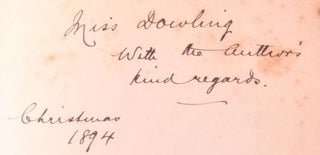 Miss Dowling
With the Author's
kind regards.
Christmas
1894